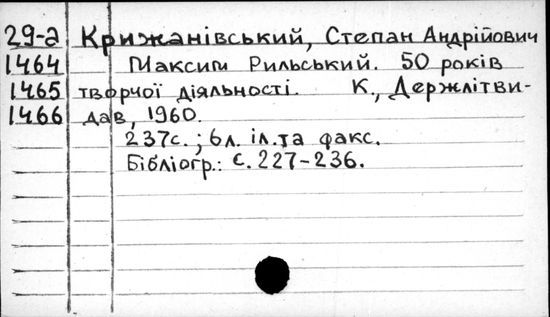 29-а Крижанівський, Степан Андрійович
1464 Максим Рильський. 50 років
1465 творчої діяльності. К., Держлітви-
1466 дав, 1960.
237с.; 6л. іл. та факс.
Бібліогр.: с. 227-236.